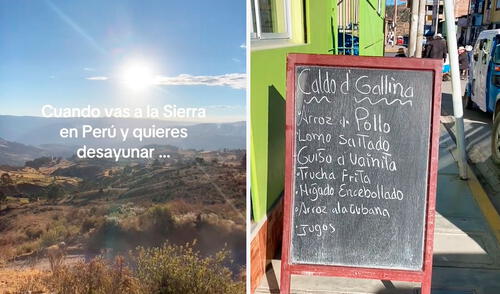 Cuando vas a la Sierra
en Perú y quieres
desayunar ...
Caldo d' Gallina
• Arroz d Pollo
• Lomo Saltado
• Guiso d Vainita
• Trucha Frita
• Higado Encebollado
• Arroz a la Cubana
• Jugos